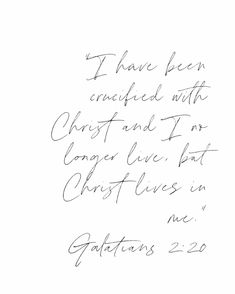 "I have been
crucified with
Christ and I no
longer live, but
Christ lives in
me."
Galatians 2:20